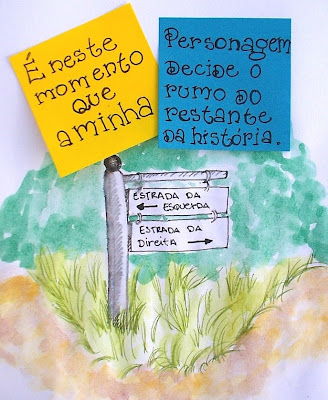 É neste
momento
que
a minha
Personagem
decide o
rumo do
restante
da história.
ESTRADA DA
ESQUERDA
ESTRADA DA
Direita